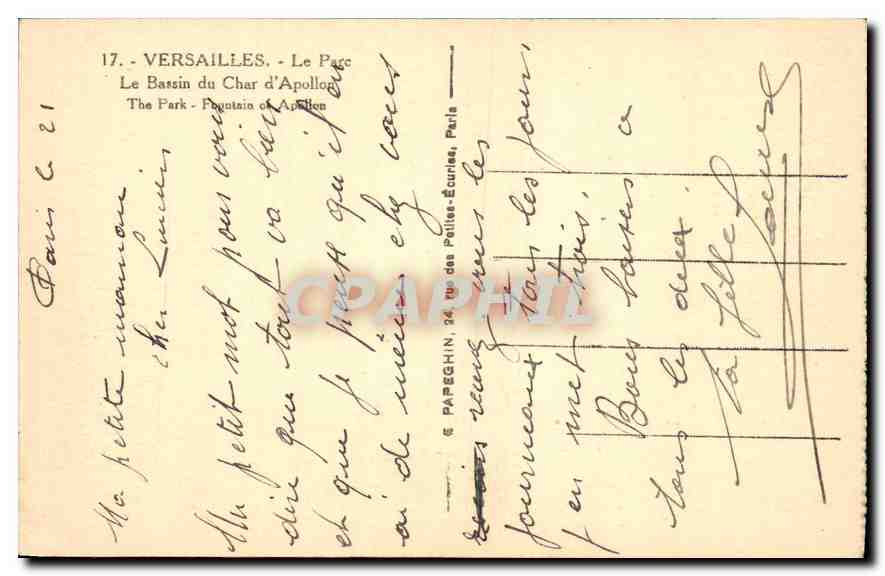 17. - VERSAILLES. - Le Parc
Le Bassin du Char d'Apollon
The Park - Fountain of Apollon
Paris le 21
Ma petite maman
cher Lucien
Un petit mot pour vous
dire que tout va bien
et que je pense qu'il en
ai de même chez vous
vous les
journeaux tous les jours,
j'en met trois.
Bons baisers a
tous les deux
Ta fille
G PAPEGHIN, 24, rue des Petites-Écuries, Paris
CPAPHIL